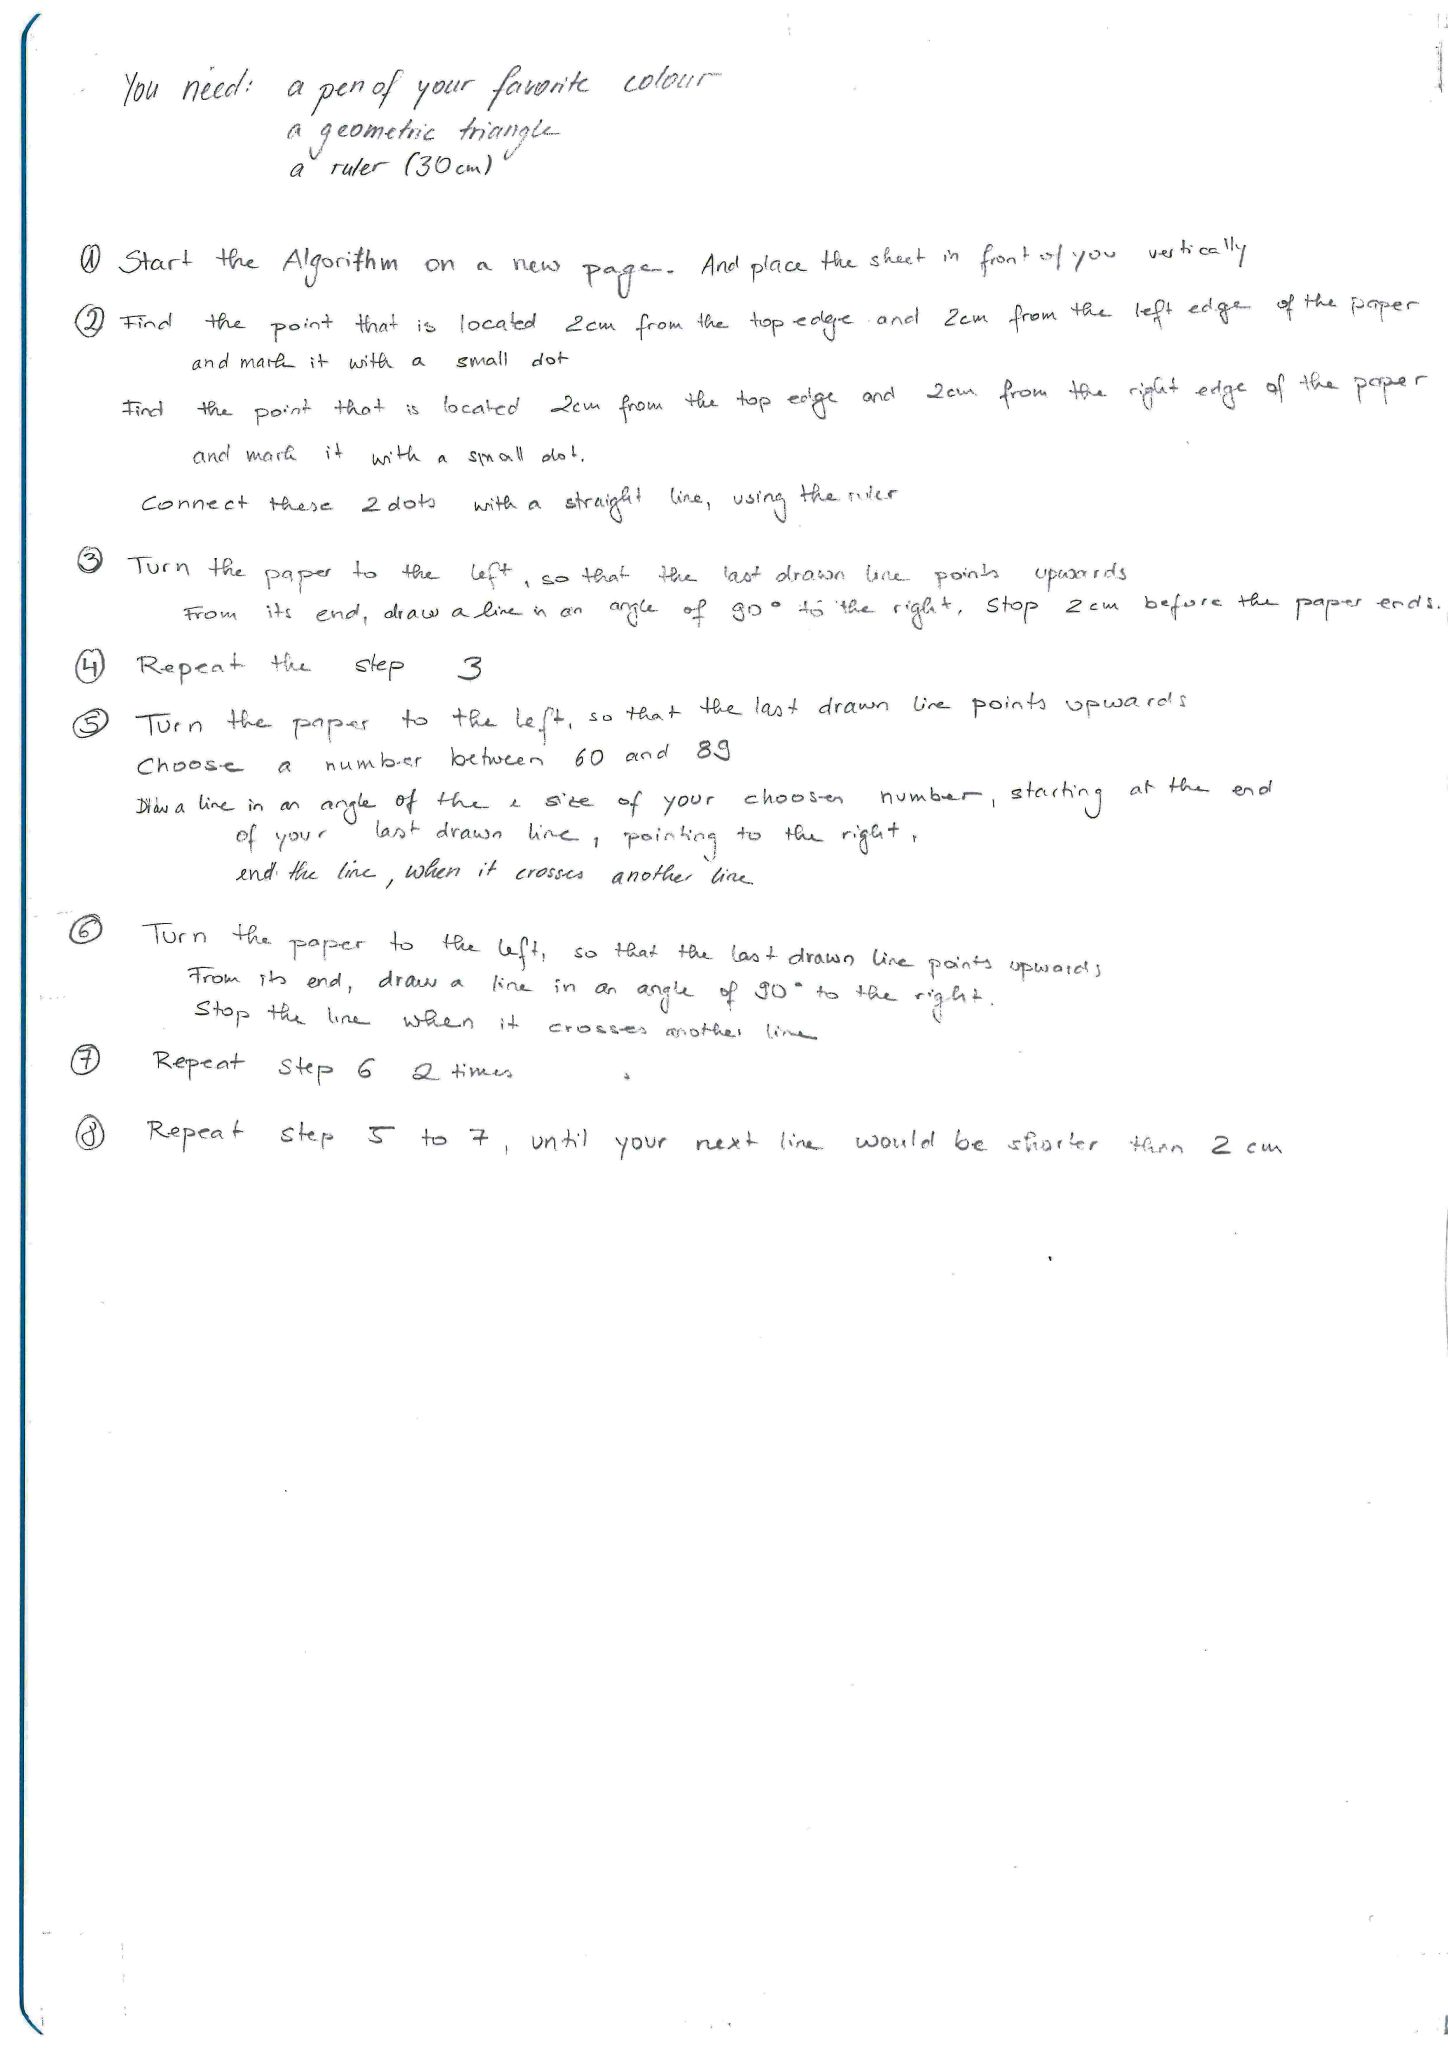 You need: a pen of your favorite colour
a geometric triangle
a ruler (30cm)
① Start the Algorithm on a new page. And place the sheet in front of you vertically
② Find the point that is located 2cm from the top edge and 2cm from the left edge of the paper
and mark it with a small dot
Find the point that is located 2cm from the top edge and 2cm from the right edge of the paper
and mark it with a small dot.
Connect these 2 dots with a straight line, using the ruler
③ Turn the paper to the left, so that the last drawn line points upwards
From its end, draw a line in an angle of 90° to the right. Stop 2cm before the paper ends.
④ Repeat the step 3
⑤ Turn the paper to the left, so that the last drawn line points upwards
Choose a number between 60 and 89
Draw a line in an angle of the size of your choosen number, starting at the end
of your last drawn line, pointing to the right,
end the line, when it crosses another line
⑥ Turn the paper to the left, so that the last drawn line points upwards
From its end, draw a line in an angle of 90° to the right.
Stop the line when it crosses another line
⑦ Repeat step 6 2 times
⑧ Repeat step 5 to 7, until your next line would be shorter than 2 cm